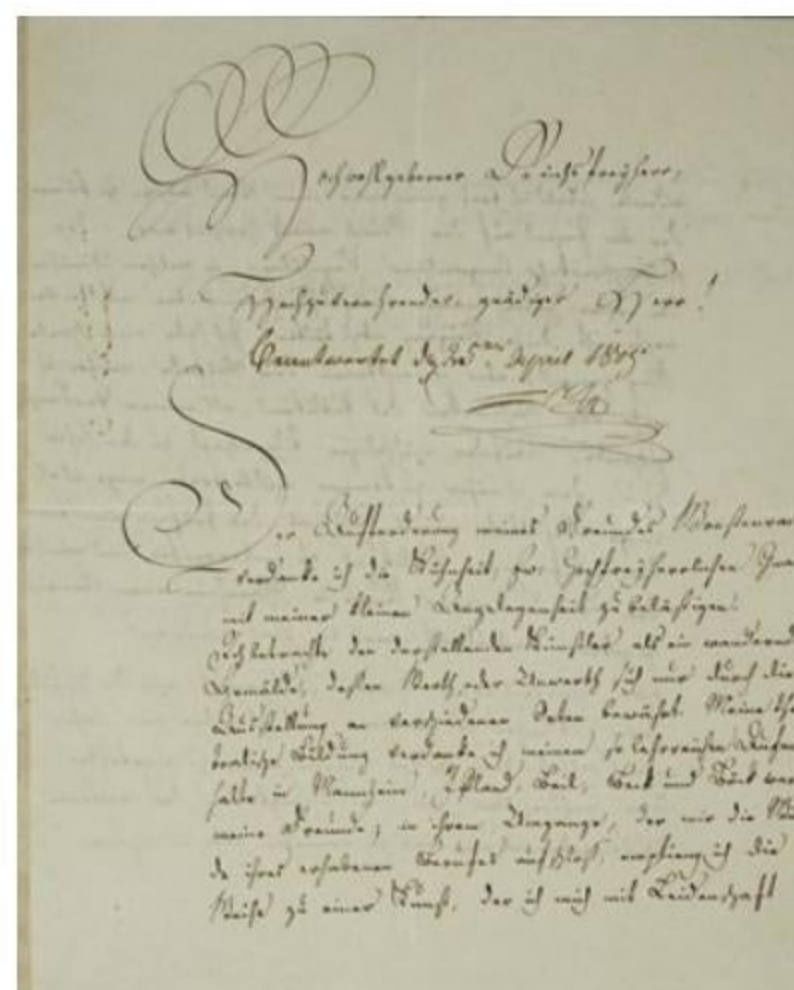 Hochwohlgeborner Reichsfreyherr,
Hochzuverehrender, gnädiger Herr!
Beantwortet d 25ten April 1815
Der Aufforderung meines Freundes
verdanke ich die Kühnheit, Ew. Hochfreyherrlichen Gna
mit meiner kleinen Angelegenheit zu belästigen.
Ich betrachte den darstellenden Künstler als ein wandernd
Gemälde, dessen Werth oder Unwerth sich nur durch die
Ausstellung an verschiedenen Orten bewährt. Meine the
atralische Bildung verdanke ich meinem so lehrreichen Aufent
halte in Mannheim, Iffland, Beil, Beck und Böck war
meine Freunde; in ihrem Umgange, der mir die Wü
de ihres erhabenen Berufes aufschloß, empfieng ich die
Weihe zu einer Kunst, der ich mich mit Leidenschaft